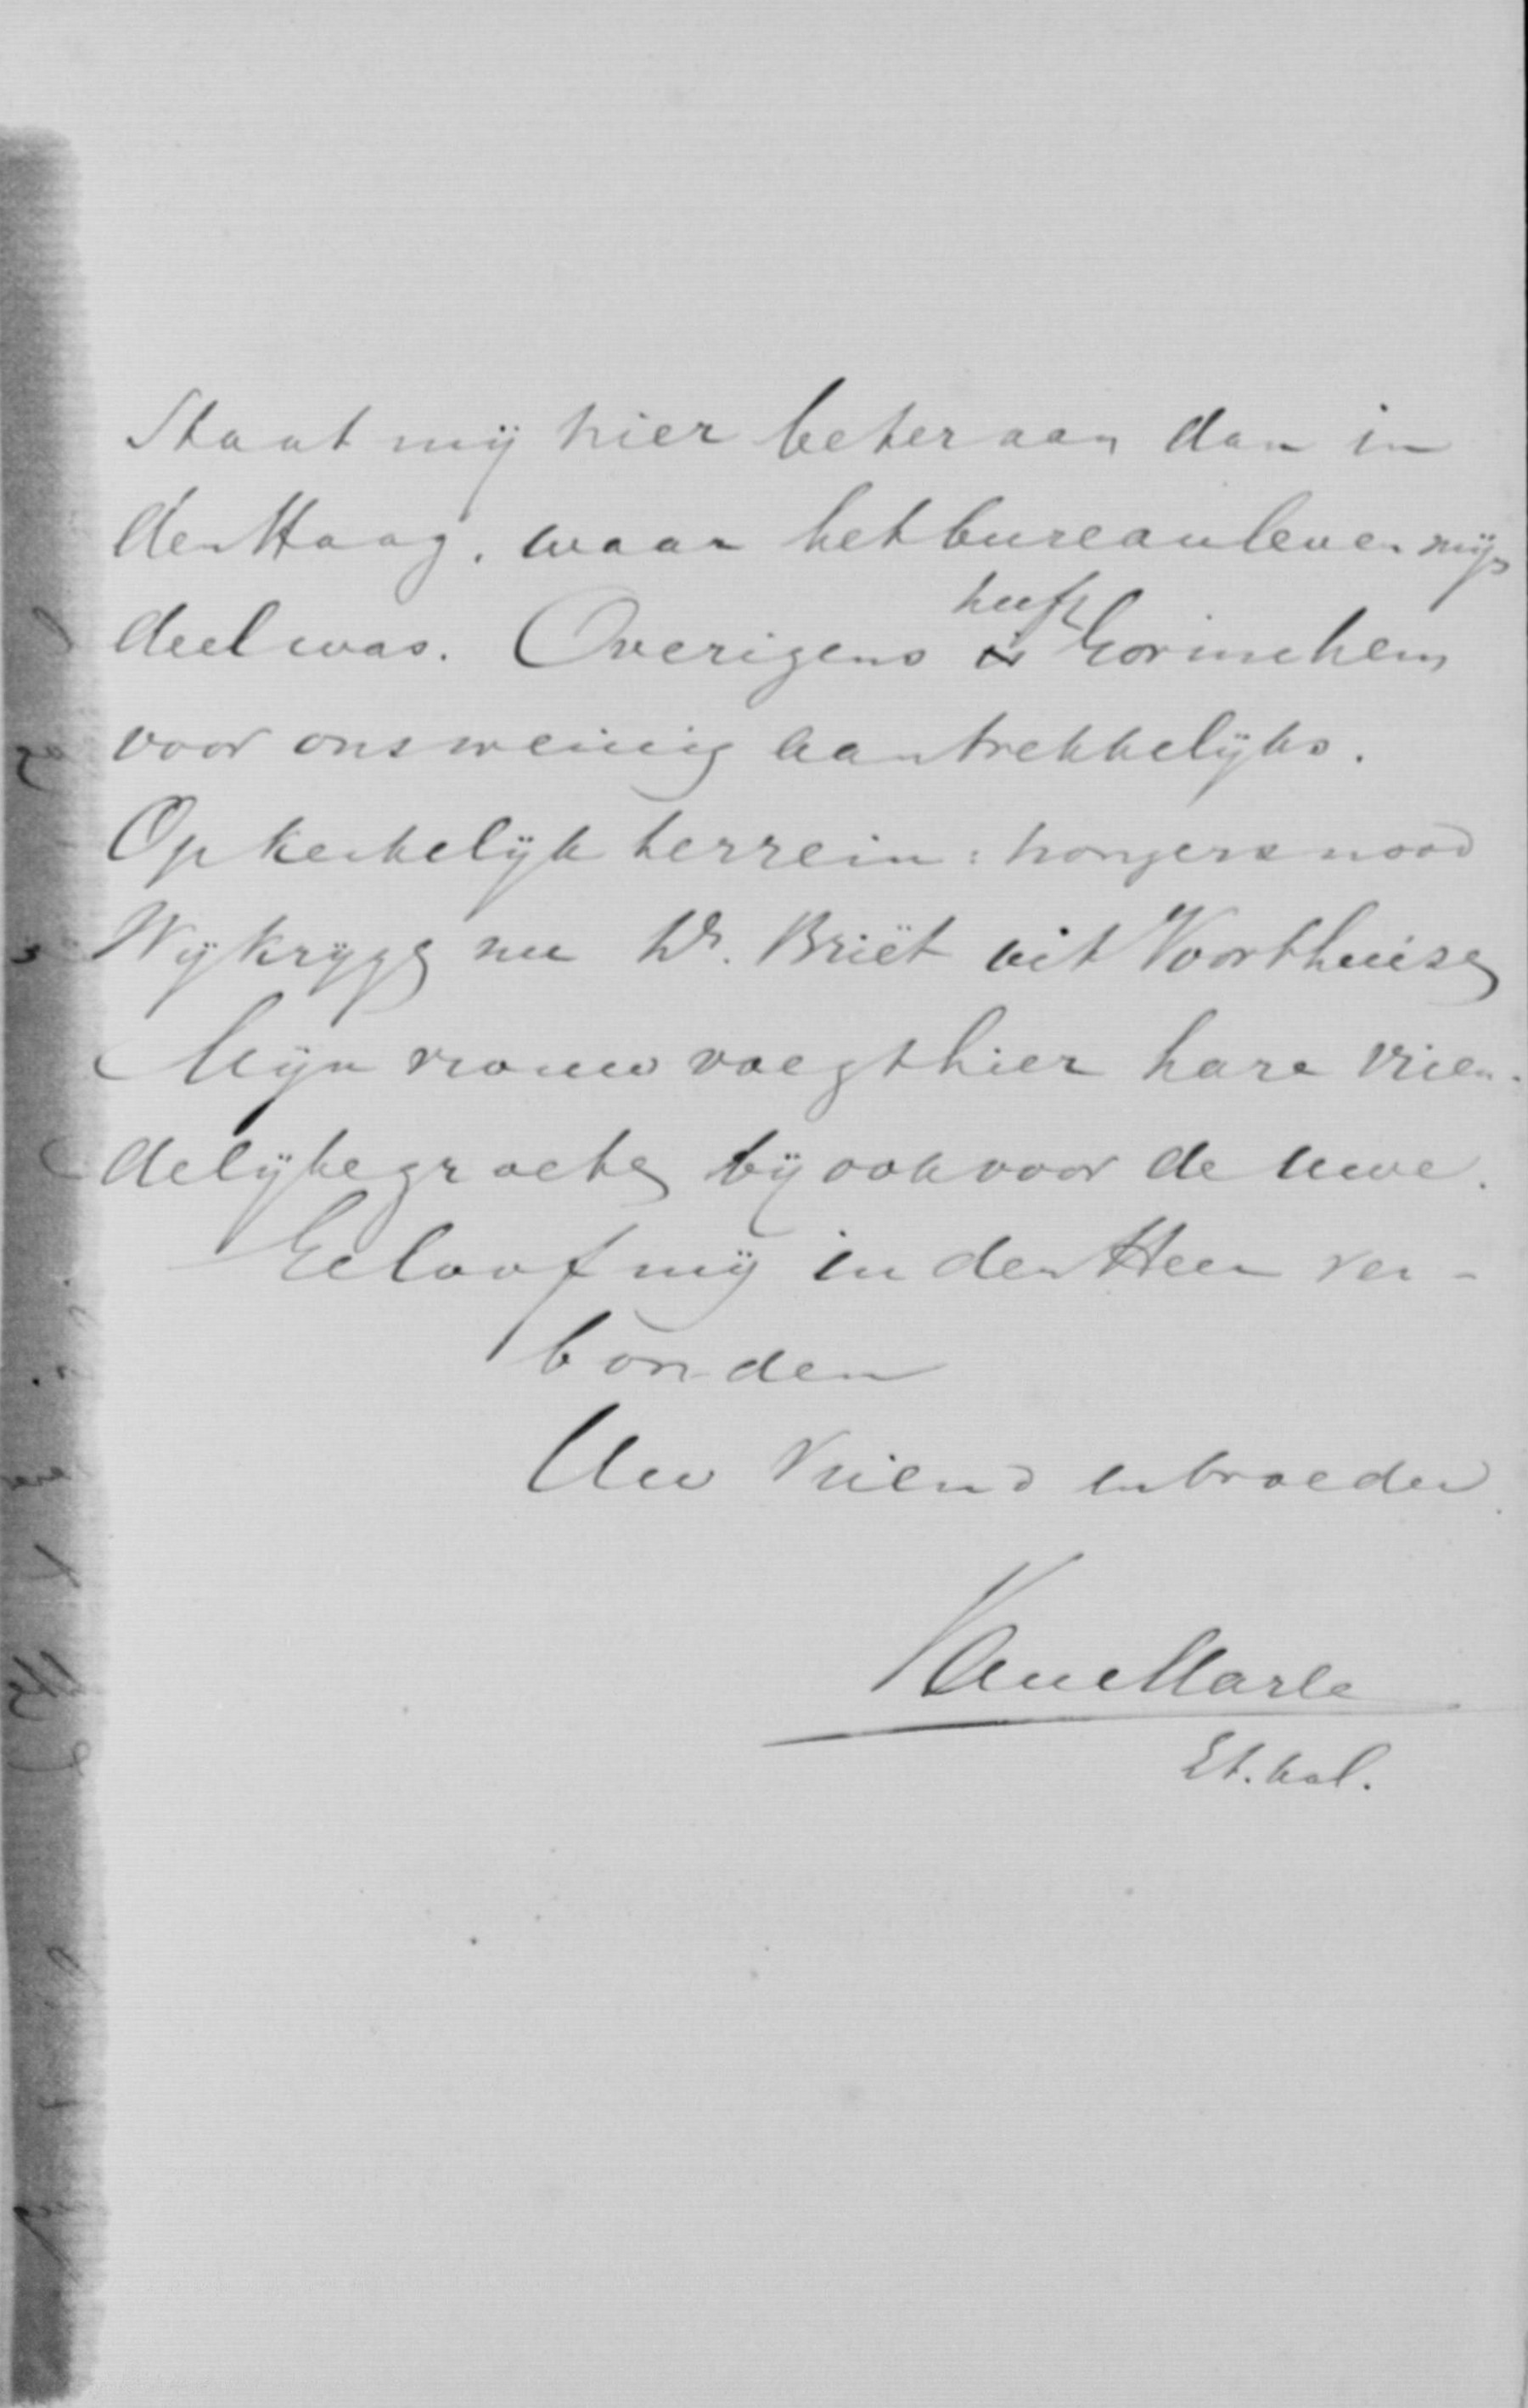 Staat mij hier beter aan dan in
den Haag, waar het bureauleven mijn
deel was. Overigens heeft Gorinchem
voor ons weinig aantrekkelijks.
Op kerkelijk terrein: hongersnood
Wij krijgen nu Ds. Briët uit Voorthuizen
Mijn vrouw voegt hier hare vrien-
delijke groeten bij ook voor de uwe.
Geloof mij in den Heer ver-
bonden
Uw vriend en broeder
Van Marle